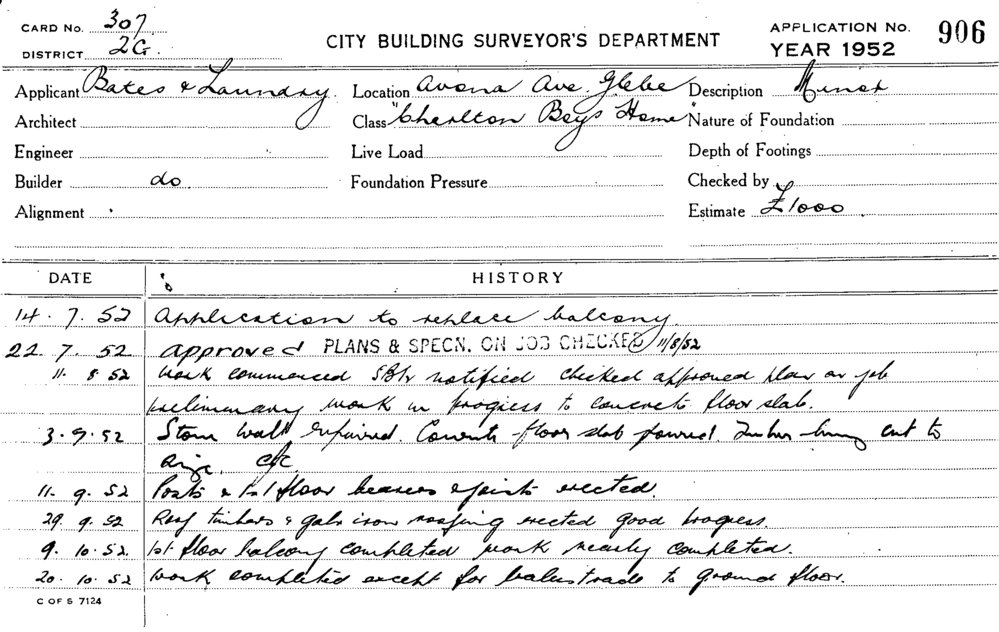 CARD No. 307
DISTRICT 2G.
CITY BUILDING SURVEYOR'S DEPARTMENT
APPLICATION No. 906
YEAR 1952
Applicant Bates & Laundry. Location Avona Ave. Glebe Description Minor
Architect Class "Charlton Boys Home" Nature of Foundation
Engineer Live Load Depth of Footings
Builder do. Foundation Pressure Checked by
Alignment Estimate £1000
DATE HISTORY
14. 7. 52 Application to replace balcony
22. 7. 52 Approved PLANS & SPECN. ON JOB CHECKED 11/8/52
11. 8. 52 Work commenced notified checked approved plan on job
preliminary work in progress to concrete floor slab.
3. 9. 52 Stone wall repaired. Concrete floor slab poured. Timber being cut to
size.
11. 9. 52 Posts & 1st floor bearers & joists erected.
29. 9. 52 Roof timbers & galv iron roofing erected good progress
9. 10. 52. 1st floor balcony completed work nearly completed.
20. 10. 52 Work completed except for balustrade to ground floor.
C OF S 7124